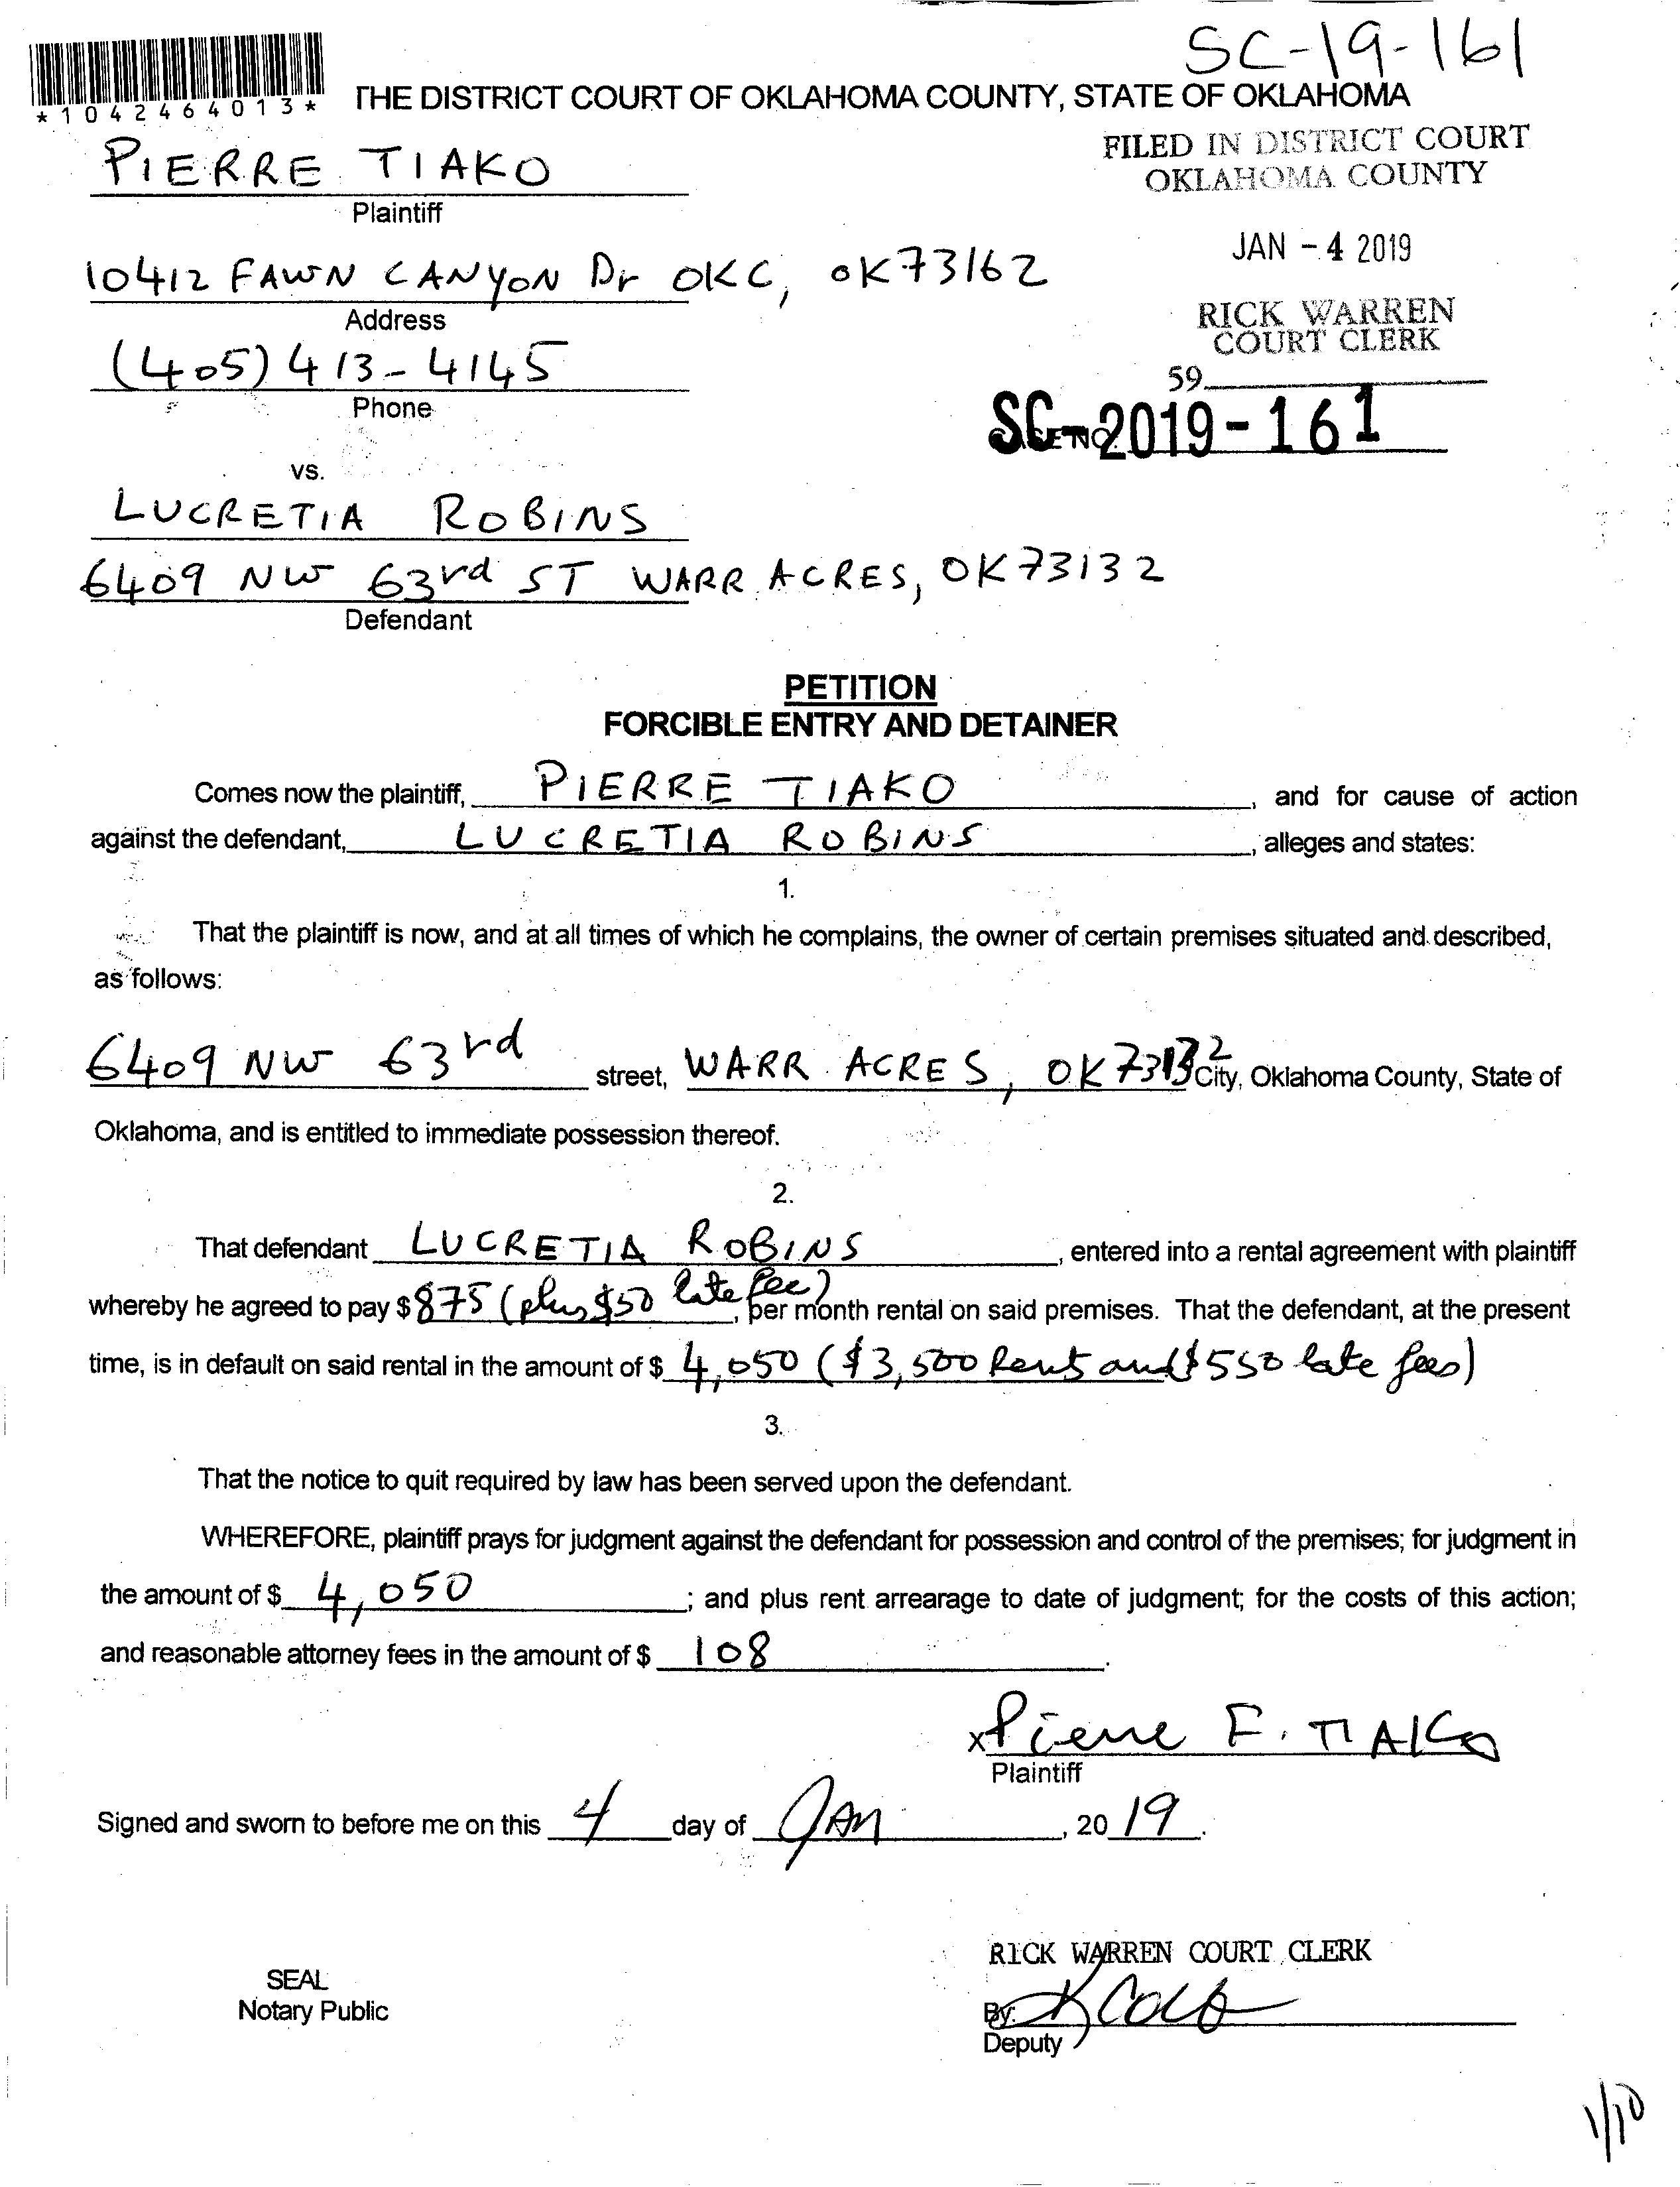 SC-19-161
*1042464013*
THE DISTRICT COURT OF OKLAHOMA COUNTY, STATE OF OKLAHOMA
FILED IN DISTRICT COURT
OKLAHOMA COUNTY
PIERRE TIAKO
Plaintiff
JAN -4 2019
10412 FAWN CANYON Dr OKC, OK 73162
Address
RICK WARREN
COURT CLERK
(405) 413-4145
Phone
59
SC-2019-161
vs.
LUCRETIA ROBINS
6409 NW 63rd ST WARR ACRES, OK 73132
Defendant
PETITION
FORCIBLE ENTRY AND DETAINER
Comes now the plaintiff, PIERRE TIAKO, and for cause of action
against the defendant, LUCRETIA ROBINS, alleges and states:
1.
That the plaintiff is now, and at all times of which he complains, the owner of certain premises situated and described,
as follows:
6409 NW 63rd street, WARR ACRES, OK 73132 City, Oklahoma County, State of
Oklahoma, and is entitled to immediate possession thereof.
2.
That defendant LUCRETIA ROBINS, entered into a rental agreement with plaintiff
whereby he agreed to pay $ 875 (plus $50 late fee), per month rental on said premises. That the defendant, at the present
time, is in default on said rental in the amount of $ 4,050 ($3,500 Rent and $550 late fees)
3.
That the notice to quit required by law has been served upon the defendant.
WHEREFORE, plaintiff prays for judgment against the defendant for possession and control of the premises; for judgment in
the amount of $ 4,050; and plus rent arrearage to date of judgment; for the costs of this action;
and reasonable attorney fees in the amount of $ 108.
x Pierre F. TIAKO
Plaintiff
Signed and sworn to before me on this 4 day of JAN, 20 19.
RICK WARREN COURT CLERK
SEAL
Notary Public
By:
Deputy
1/10